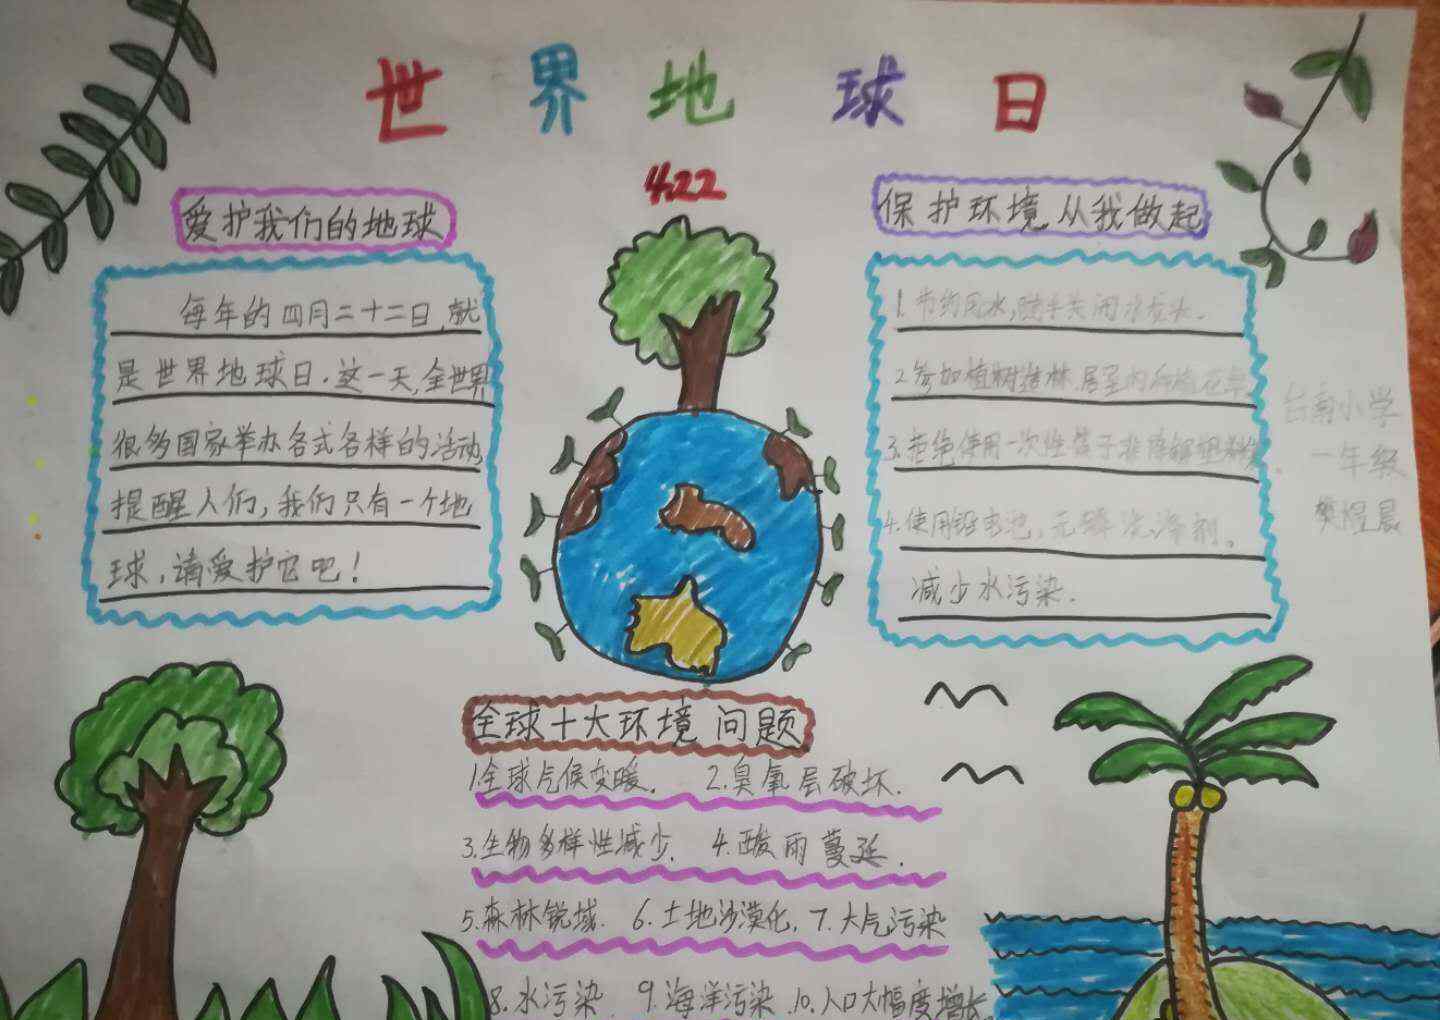 世界地球日
4.22
爱护我们的地球
每年的四月二十二日,就
是世界地球日.这一天,全世界
很多国家举办各式各样的活动,
提醒人们,我们只有一个地
球,请爱护它吧!
保护环境从我做起
1.节约用水,随手关闭水龙头.
2.参加植树造林,居室内种植花草
3.拒绝使用一次性筷子非降解塑料袋
4.使用铅电池,无磷洗涤剂。
减少水污染.
台南小学
一年级
樊煜晨
全球十大环境问题
1.全球气候变暖. 2.臭氧层破坏.
3.生物多样性减少. 4.酸雨蔓延.
5.森林锐域. 6.土地沙漠化. 7.大气污染
8.水污染 9.海洋污染 10.人口大幅度增长